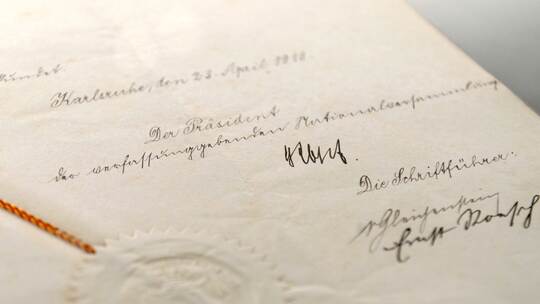 kundet.
Karlsruhe, den 23. April 1919.
Der Präsident
der verfassunggebenden Nationalversammlung
Kopf.
Die Schriftführer:
vGleichenstein
Ernst